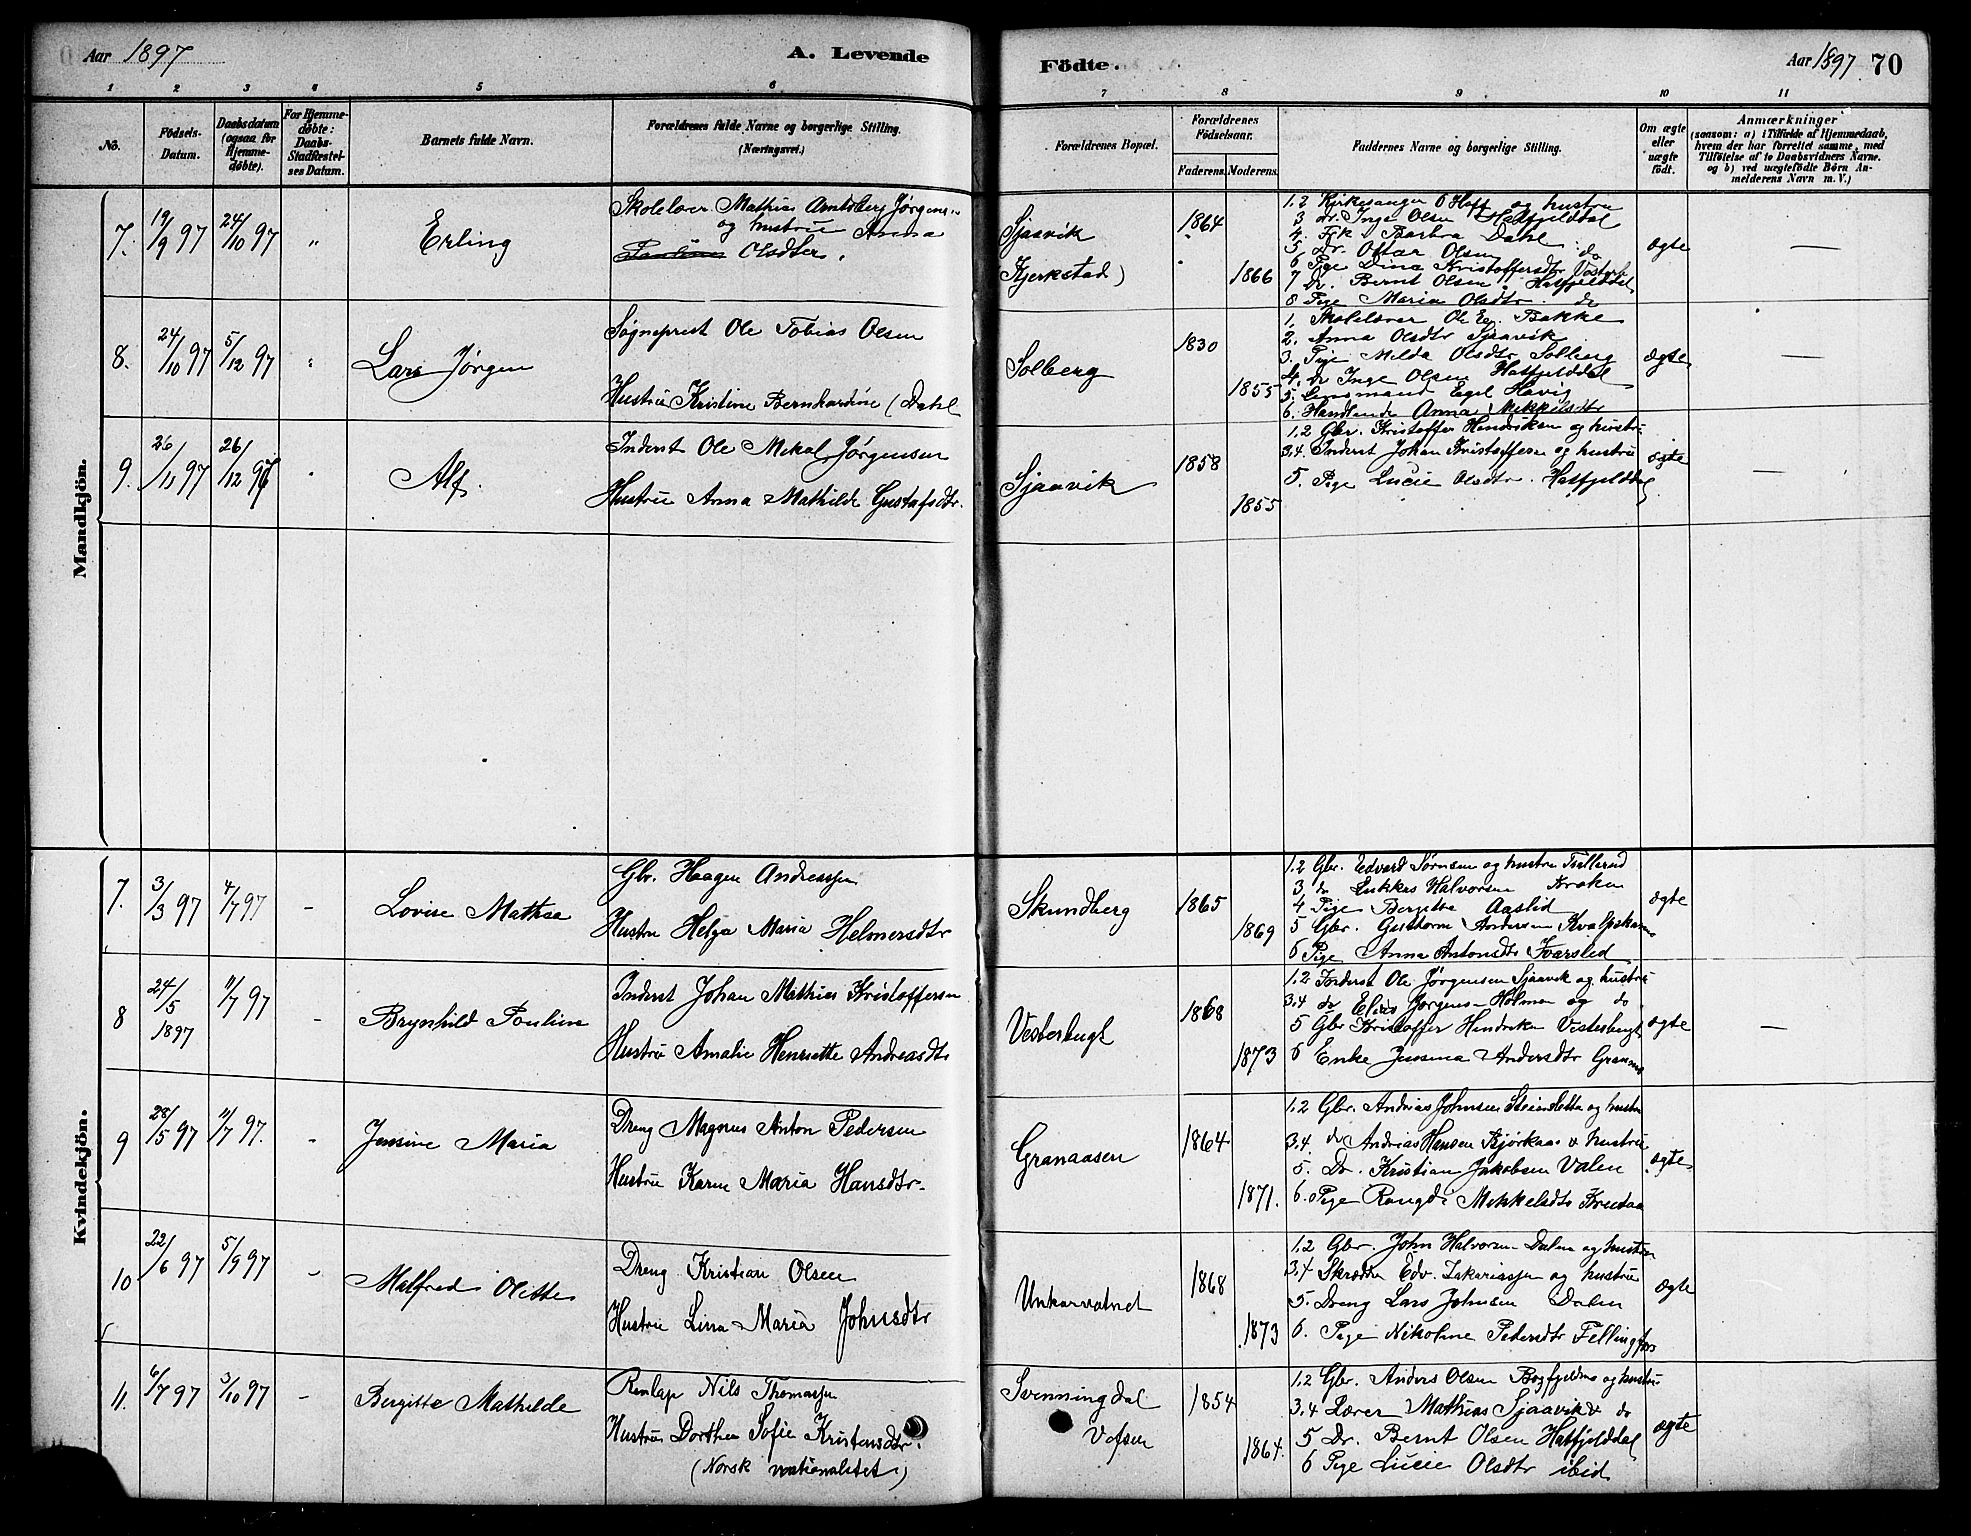 Aar 1897
A. Levende
Födte.
Aar 1897
70
1 2 3 4 5 6 7 8 9 10 11
No.
Födsels-Datum.
Daabsdatum (ogsaa for Hjemmedöbte).
For Hjemmedöbte: Daabs-Stadfæstelses Datum.
Barnets fulde Navn.
Forældrenes fulde Navne og borgerlige Stilling. (Næringsvei.)
Forældrenes Bopæl.
Forældrenes Födselsaar.
Faderens. Moderens.
Faddernes Navne og borgerlige Stilling.
Om ægte eller uægte födt.
Anmærkninger
(saasom: a) i Tilfælde af Hjemmedaab, hvem der har forrettet samme, med Tilföielse af to Daabsvidners Navne. og b) ved uægtefödte Börn Anmelderens Navn m. V.)
Mandkjön.
7. 19/9 97 24/10 97 " Erling
Skolelær Mathias Amtsberg Jørgens..
og hustru Anna
Olsdter.
Sjaavik
Kjerkstad)
1864
1866
1.2 Kirkesanger O Hoff og hustru
3 dr. Inge Olsen Hatfjelddal
4. Frk Barbra Dahl
5. Dr. Ottar Olsen do
6 Pige Dina Kristoffersdtr Vesterb
7 Dr. Bernt Olsen Hatfjelddal
8 Pige Maria Olsdtr. do
ægte —
8. 24/10 97 5/12 97 " Lars Jørgen
Søgneprest Ole Tobias Olsen
Hustru Kristine Bernhardine (Dahl
Solberg
1830
1855
1. Skolelærer Ole Bakke
2. Anna Olsdtr Sjaavik
3. Pige Milda Olsdtr Solberg
4. dr Inge Olsen Hatfjelddal
5. Lensmand Egel Havig
6. Handlende Anna Mikkelsdtr
ægte —
9. 26/11 97 26/12 97 " Alf.
Inderst Ole Mikal Jørgensen
Hustru Anna Mathilde Gustafsdtr.
Sjaavik
1858
1855
1.2 Gbr. Kristoffer Hendriksen og hustru
3.4. Inderst Johan Kristoffersen og hustru
5. Pige Lucie Olsdtr. Hatfjelddal
ægte —
Kvindekjön.
7. 3/3 97 4/7 97 – Lovise Mathea
Gbr. Haagen Andreassen
Hustru Helga Maria Helmersdtr
Skundberg
1865
1869
1.2 Gbr. Edvart Sørensen og hustru
3 do Lukkas Halvorsen Kroken
4 Pige Bergitte Aaslid
5 Gbr. Guthorm Andersen
6 Pige Anna Antonsdtr Ivarslid
ægte
8 24/5 1897 11/7 97 – Brynhild Pouline
Inderst Johan Mathias Kristoffersen
Hustru Amalie Henriette Andreasdtr
Vesterbugt
1868
1873
1.2 Inderst Ole Jørgensen Sjaavik og hustru
3.4 do Elias Jørgens– Holmen og do
5 Gbr Kristoffer Hendriksen Vesterbugt
6 Enke Jensina Andersdtr
ægte —
9 28/5 97 11/7 97. – Jensine Maria
Dreng Magnus Anton Pedersen
Hustru Karen Maria Hansdtr.
Granaasen
1864
1871.
1.2 Gbr. Andrias Johnsen Steinsletta og hustru
3.4. do Andrias Hansen Bjørkaas & hustru
5. Dr. Kristian Jakobsen Valen
6. Pige Mikkelsdtr Krutaa
ægte
10 22/6 97 5/9 97 – Malfred Olette
Dreng Kristian Olsen
Hustru Lina Maria Johnsdtr
Unkarvatnet
1868
1873
1.2 Gbr. John Halvorsen Dalen og hustru
3.4 Skrædder Edv. Zakariassen og hustru
5. Dreng Lars Johnsen Dalen
6. Pige Nikoline Pedersdtr Fellingfors
ægte
11. 6/7 97 3/10 97 – Bergitte Mathilde
Renlap Nils Thomassen
Hustru Dorthea Sofie Kristensdtr.
(Norsk nationalitet)
Svenningdal
Vefsen
1854
1864.
1.2 Gbr. Anders Olsen Bogfjeldmo og hustru
3.4 Lærer Mathias Sjaavik & do
5 Dr. Bernt Olsen Hatfjelddal
6 Pige Lucie Olsdtr ibid
ægte